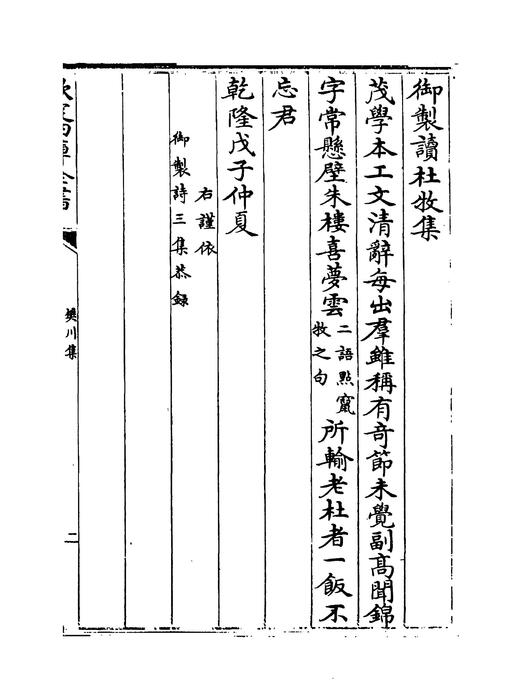 御製讀杜牧集
茂學本工文清辭每出羣雖稱有奇節未覺副髙聞錦
字常懸壁朱樓喜夢雲二語㸃竄牧之句所輸老杜者一飯不
忘君
乾隆戊子仲夏
右謹依
御製詩三集恭録
樊川集
二